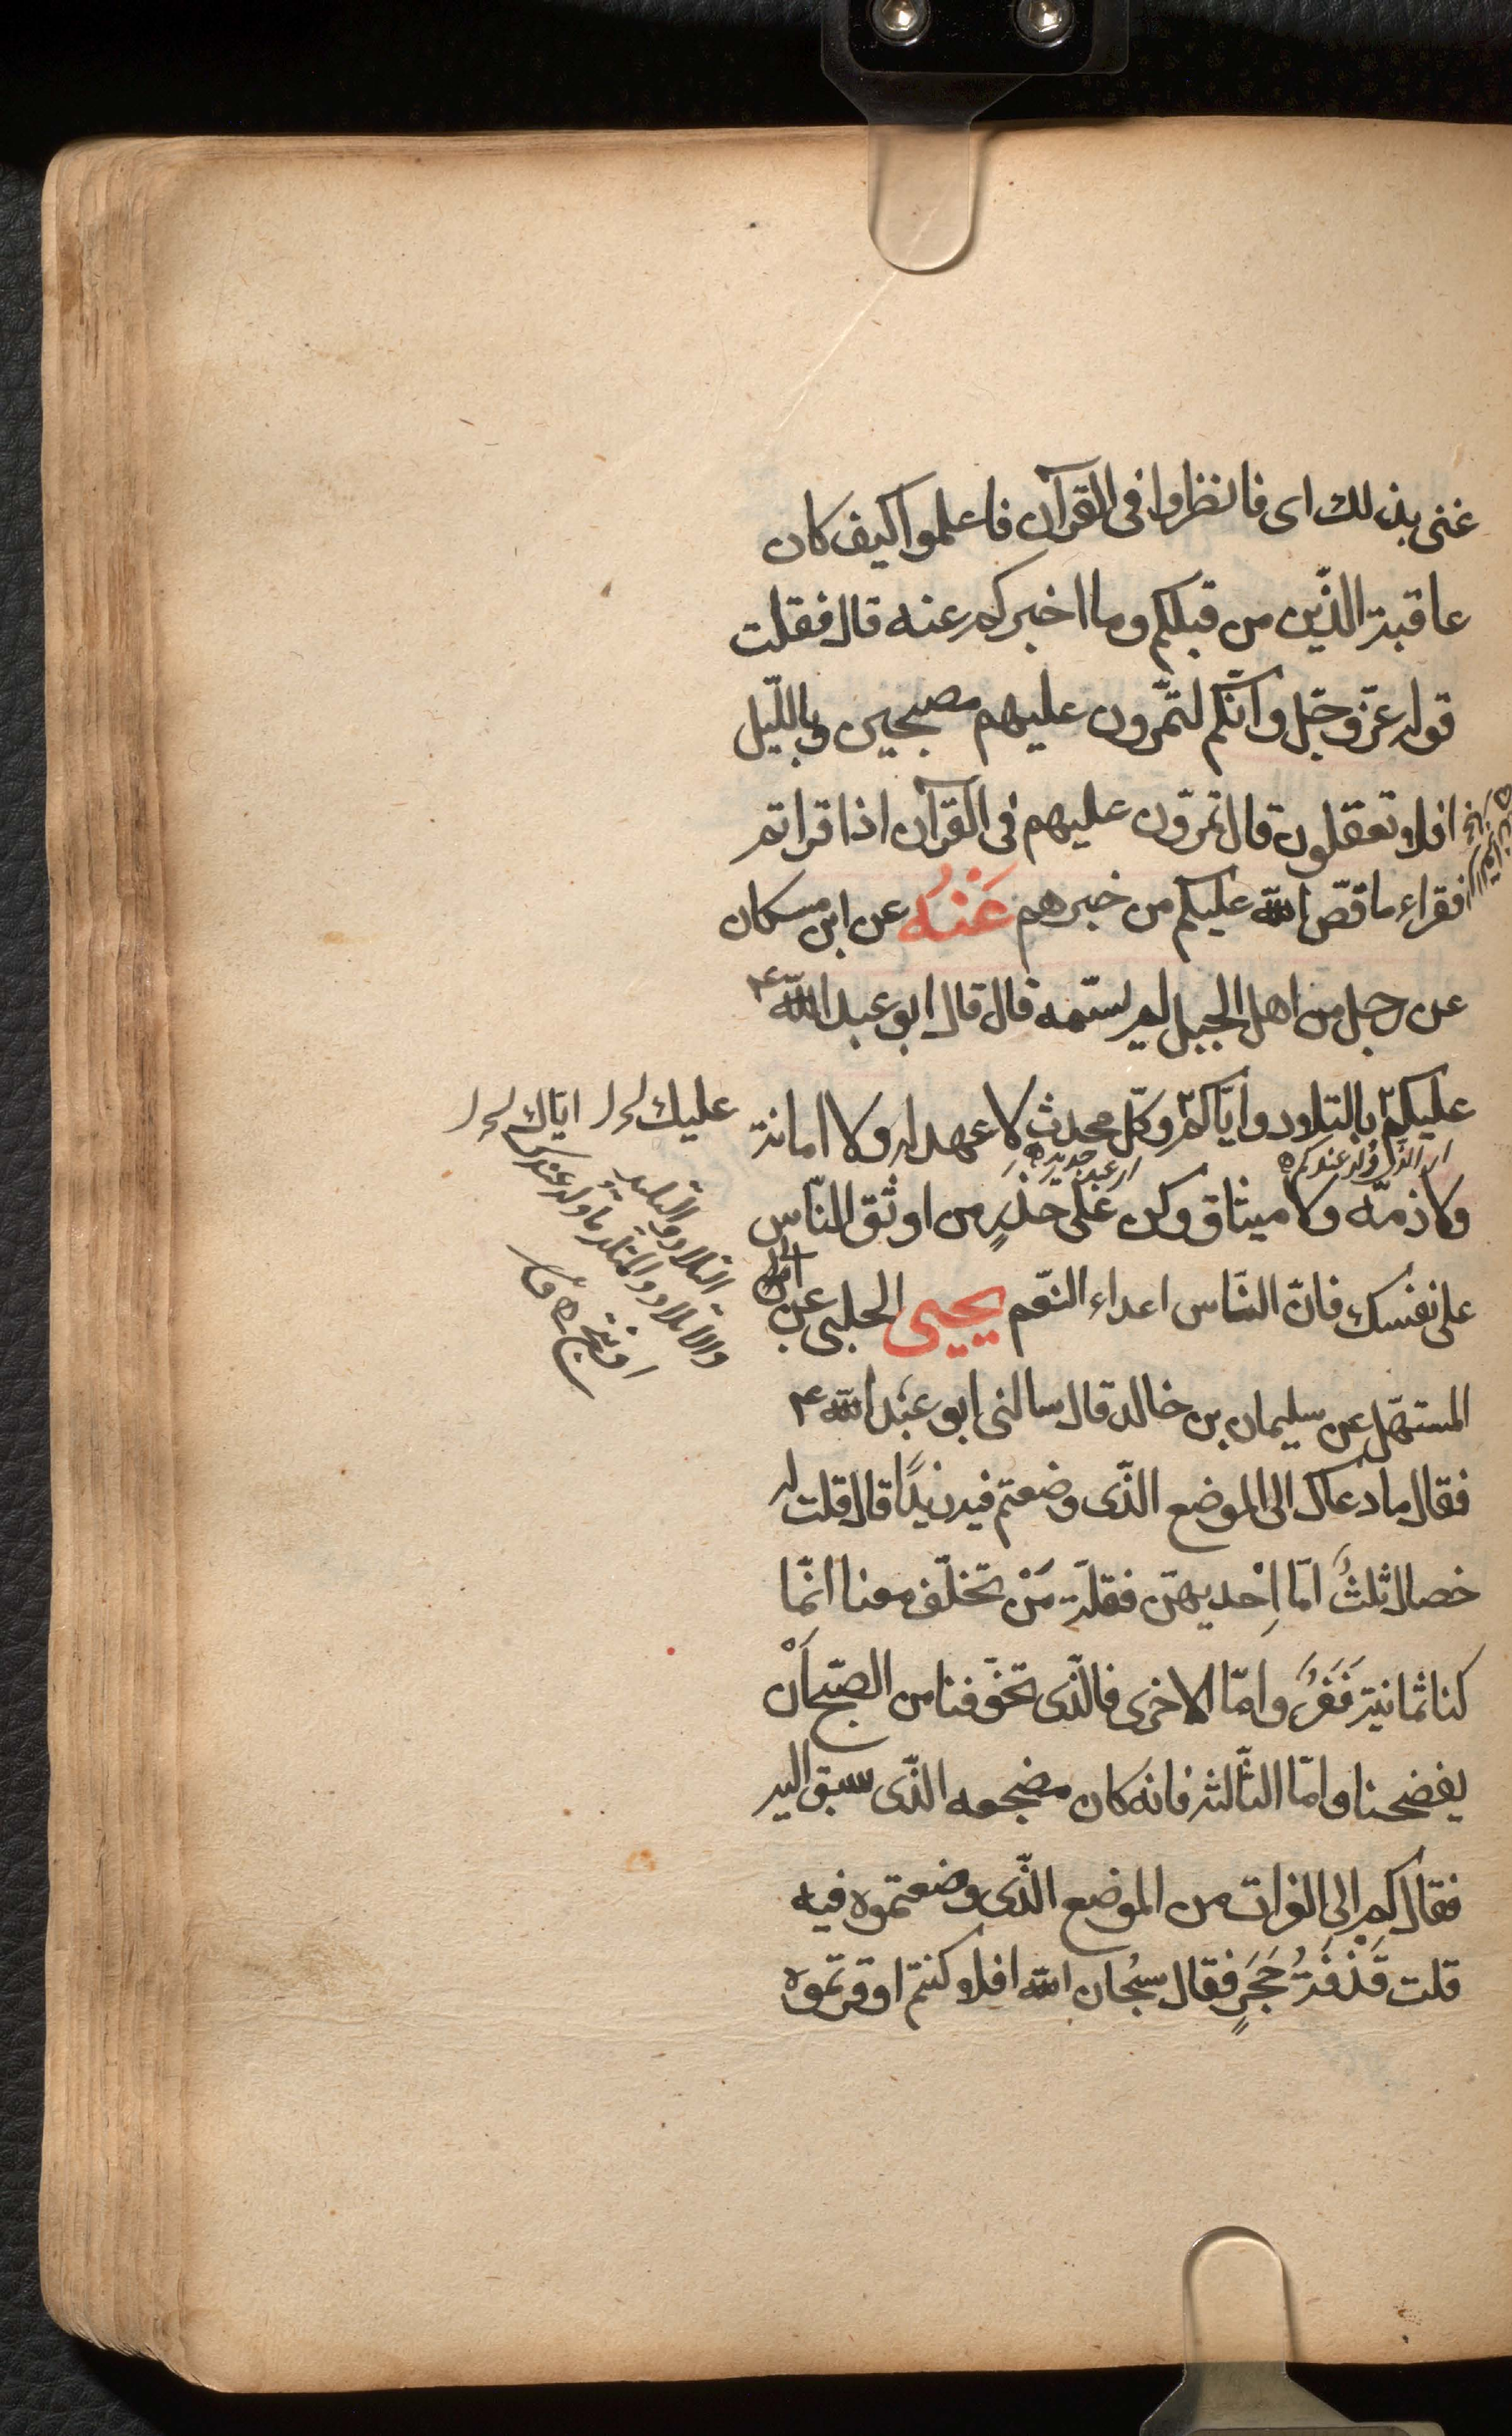 عنى بذلك اى فانظروا فى القرآن فاعلموا كيف كان
عاقبة الذّين من قبلكم وما اخبركم عنه قال فقلت
قوله عزّ وجّل وانّكم لتمّرون عليهم مصبحين وباللّيل
افلا تعقلون قال تمرّون عليهم فى القرآن اذا قراتم
افقراء ما قصّ الله عليكم من خبرهم عَنْهُ عن ابن مسكان
عن رجل من اهل الجبل لم يسّمه قال قال ابو عبد اللّه ع
عليكم بالتلاد وايّاكم وكلّ محدث لا عهد له ولا امانة
ولا ذمّه ولا ميثاق وكن على حَذِرٍ من اوثق النّاس
على نفسك فانّ النّاس اعداء النّعم يحيى الحلبى عن ابى
المستهّل عن سليمان بن خالد قال سالنى ابو عبد الله ع
فقال ما دعاكم الى الموضع الذّى وضعتم فيه زيدًا قال قلت له
خصال ثلثُ امّا اِحديهنّ فقلّة مَنْ تخلّف معنا انّما
كنا ثمانية نَفَرٍ وامّا الاخرى فالذّى تخوّفنا من الصّبح اَنْ
يفضحنا وامّا الثّالثة فانه كان مضجعه الذّى سبق اليه
فقال كم الى الفرات من الموضع الذّى وضعتموه فيه
قلت قَذْفَةُ حَجَرٍ فقال سبحان الله افلا كنتم اوقرتموه
اى الذى ولد عندكم
عليك
اياك
التلاد والتليد
والاتلاد والمتلد ما ولد عندك
او نتج ق